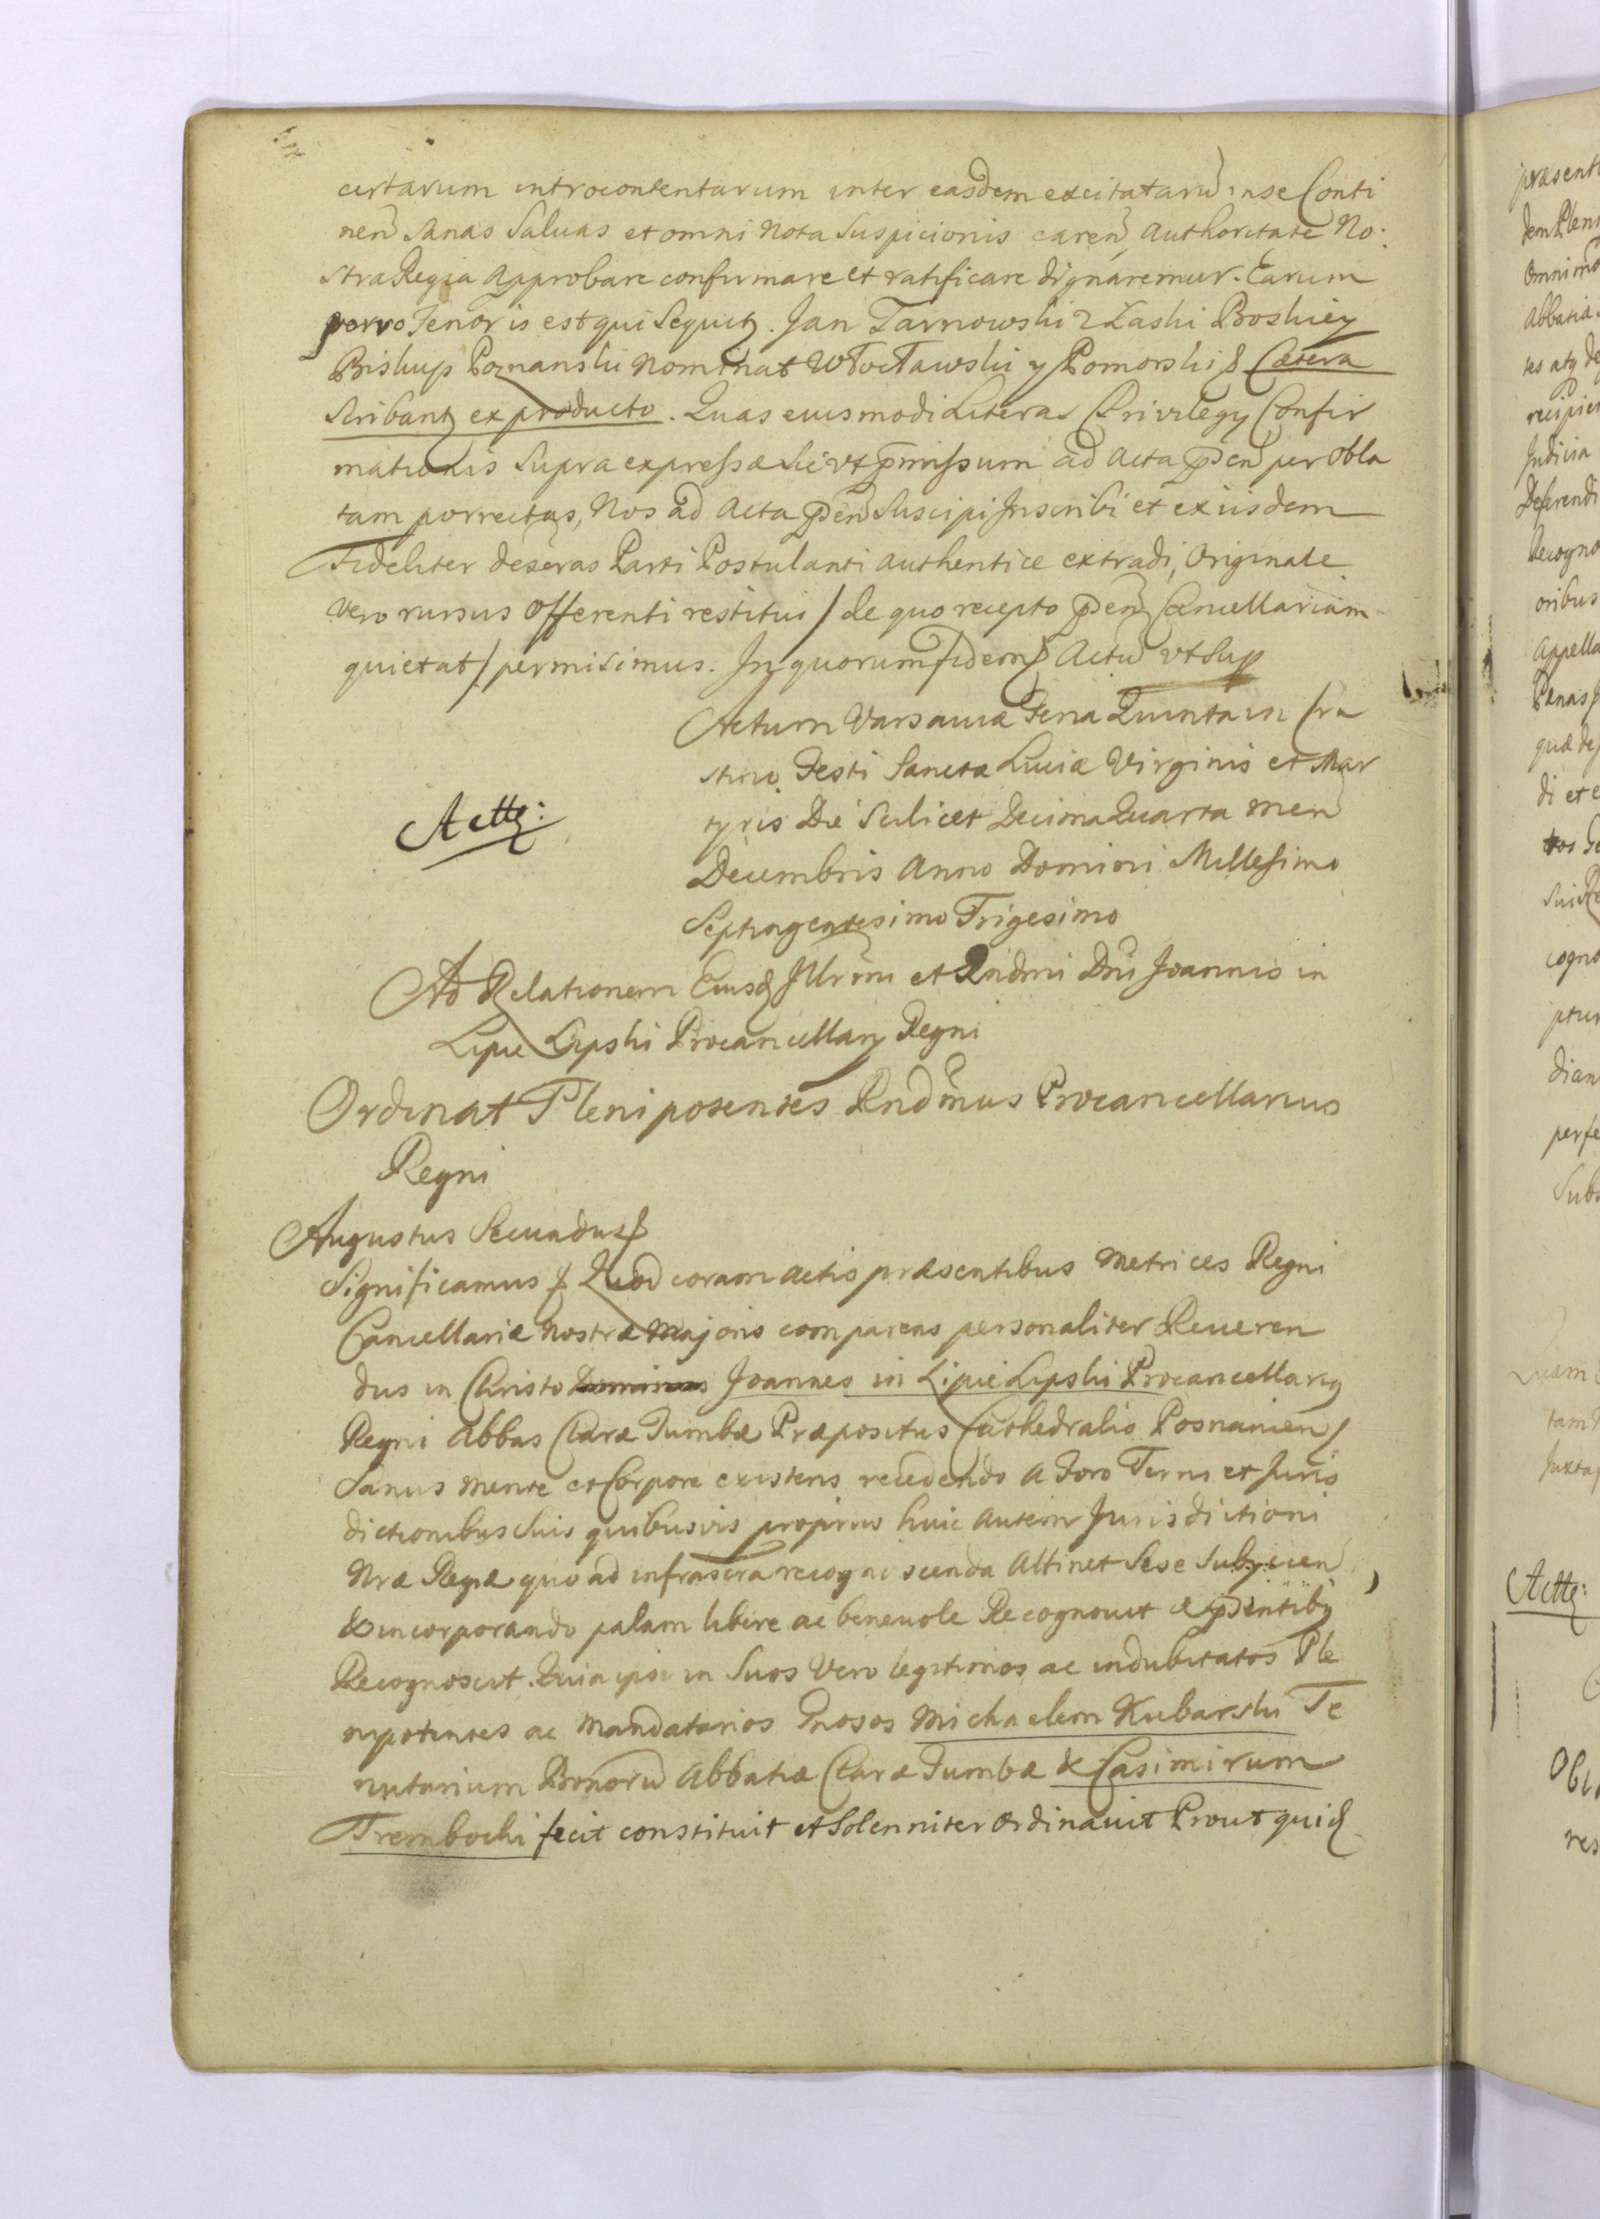 certarum introcontentarum inter easdem excitatarũ inse Conti
nen sanas Saluas et omni Nota Suspicionis caren, Authoritate No:
stra Regia Approbare confirmare et ratificare dignaremur. Earum
porro Tenor is est qui Sequitz. Jan Tarnowski z Łaski Boskiey
Biskup Poznanski Nominat Włocławski y Pomorski & Cætera
Scribantz ex producto. Quas eiusmodi Literas Privilegy Confir
mationis Supra expressæ sic vt p̃missum ad Acta p̃sen per obla
tam porrectas, Nos ad Acta p̃sen Suscipi Inscribi et ex iisdem
Fideliter Parti Postulanti authentice extradi, Originale
Vero rursus Offerenti restitui / de quo recepto p̃sen Cancellariam
quietat / permisimus. In quorum fidem & Actũ vt Sup
Actum Varsaviæ Feria Quinta in Cra
stino Festi Sanctæ Luciæ Virginis et Mar
tyris Die Scilicet Decima Quarta Men
Decembris Anno Domini Millesimo
Septingentesimo Trigesimo
Actz:
Ad Relationem Eiusd Illrmi et Rndmi Dni Joannis in
Lipie Lipski Procancellary Regni
Ordinat Plenipotentes Rndmus Procancellarius
Regni
Augustus Secundus &
Significamus & Quod coram actis præsentibus Metrices Regni
Cancellariæ Nostræ Majoris comparens personaliter Reueren
dus in Christo Dominus Joannes in Lipie Lipski Procancellary
Regni Abbas Claræ Tumbæ Præpositus Cathedralis Posnanien
Sanus mente et Corpore existens recedendo a Foro Terris et Juris
dictionibus Suis quibusvis proprijs huic autem Jurisdictioni
Nræ Regiæ quo ad infrascra recogniscenda Attinet Sese Subycien
& incorporando palam libere ac beneuole Recognouit & p̃sentibq
Recognoscit. Quia ipse in Suos Vero legitimos ac indubitatos Ple
nipotentes ac Mandatarios Gnosos Michaelem Kubarski Te
nutarium Bonorũ Abbatiæ Claræ Tumbæ & Casimirum
Trembocki fecit constituit et Solenniter Ordinauit Prout quid